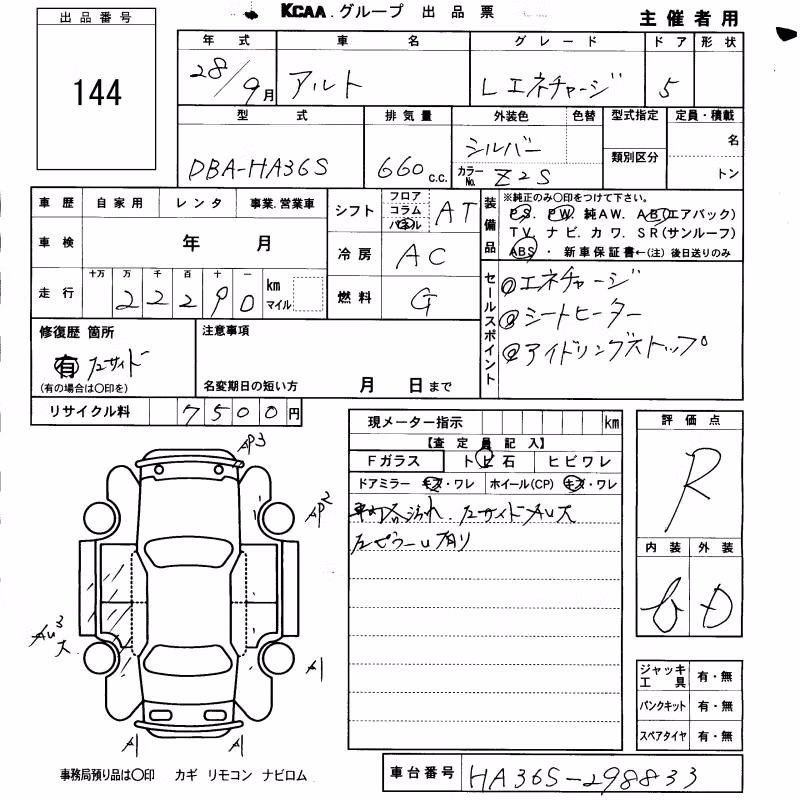 KCAA.グループ 出品票
主催者用
出品番号
144
年式 車名 グレード ドア 形状
28/9月 アルト Lエネチャージ 5
型式 排気量 外装色 色替 型式指定 定員・積載
DBA-HA36S 660c.c. シルバー 名
カラーNo. Z2S 類別区分 トン
車歴 自家用 レンタ 事業.営業車
車検 年 月
走行 十万 万 千 百 十 一
22290 km マイル
シフト フロア コラム パネル AT
冷房 AC
燃料 G
装備品 ※純正のみ〇印をつけて下さい。
PS. PW 純AW. AB(エアバック)
TV. ナビ. カワ. SR(サンルーフ)
ABS ・ 新車保証書←(注) 後日送りのみ
セールスポイント
エネチャージ
シートヒーター
アイドリングストップ
修復歴 箇所
有 左サイド
(有の場合は〇印を)
注意事項
名変期日の短い方 月 日まで
リサイクル料 7500円
現メーター指示 km
【査定員記入】
Fガラス トビ石 ヒビワレ
ドアミラー キズ・ワレ ホイール(CP) キズ・ワレ
左サイドAU大
左ピラーU有り
評価点
R
内装 外装
D
ジャッキ 工具 有・無
パンクキット 有・無
スペアタイヤ 有・無
AP3
AP2
AU3
大
A1
A1
A1
事務局預り品は〇印 カギ リモコン ナビロム
車台番号 HA36S-298833